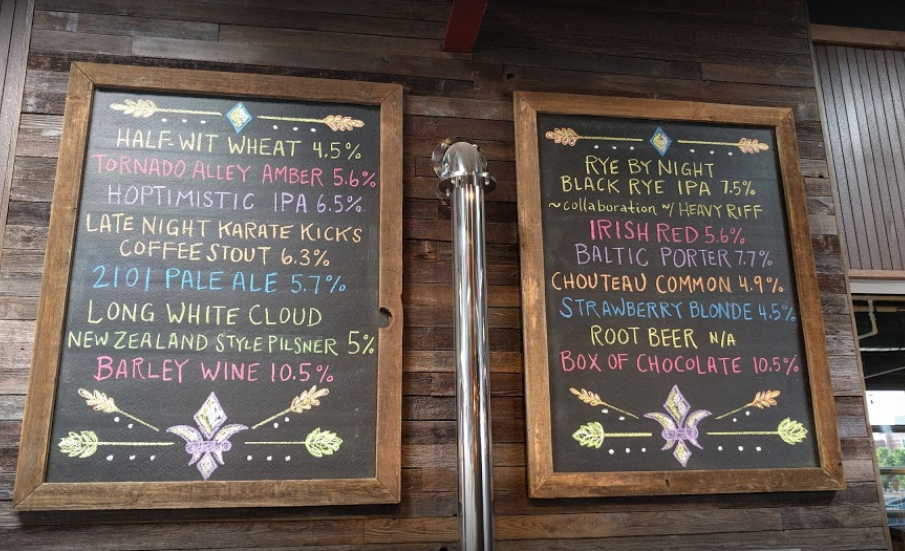 HALF-WIT WHEAT 4.5%
TORNADO ALLEY AMBER 5.6%
HOPTIMISTIC IPA 6.5%
LATE NIGHT KARATE KICKS
COFFEE STOUT 6.3%
2101 PALE ALE 5.7%
LONG WHITE CLOUD
NEW ZEALAND STYLE PILSNER 5%
BARLEY WINE 10.5%
RYE BY NIGHT
BLACK RYE IPA 7.5%
~collaboration w/ HEAVY RIFF
IRISH RED 5.6%
BALTIC PORTER 7.7%
CHOUTEAU COMMON 4.9%
STRAWBERRY BLONDE 4.5%
ROOT BEER N/A
BOX OF CHOCOLATE 10.5%